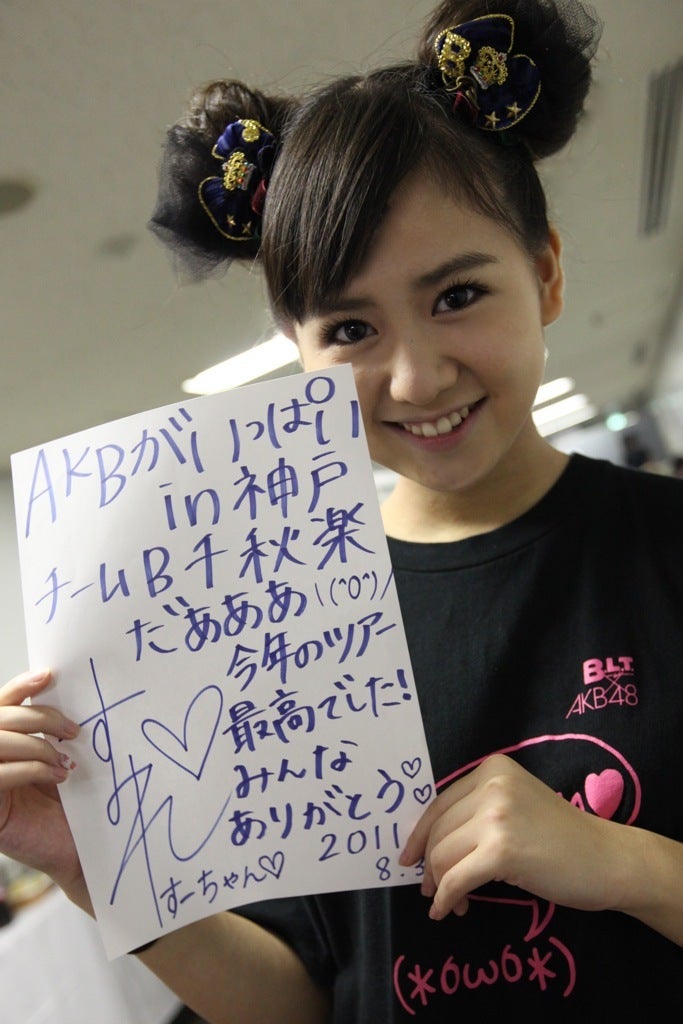 AKBがいっぱい
in神戸
チームB千秋楽
だぁああ\(^0^)/
今年のツアー
最高でした!
みんな
ありがとう♡♡
2011
8.3
すみれ♡
すーちゃん♡
B.L.T.
×
AKB48
(*óωò*)